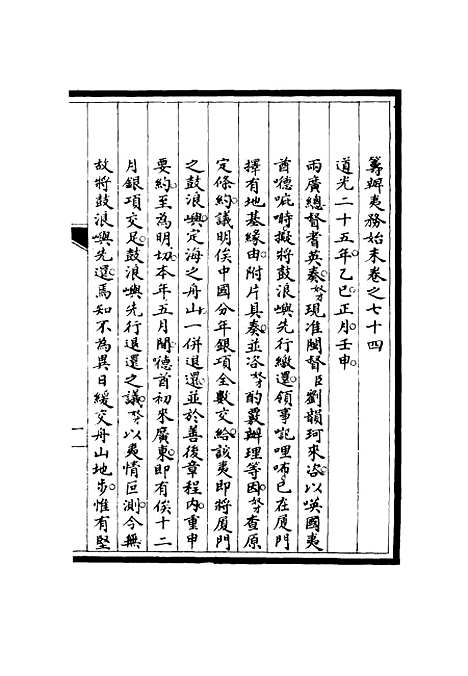 籌辦夷務始末卷之七十四
道光二十五年乙巳正月壬申
兩廣總督耆英奏。奴才現准閩督臣劉韻珂來咨。以㗸國夷
酋嘚呢時擬將鼓浪嶼先行繳還。領事記哩咘。已在廈門
擇有地基緣由。附片具奏。並咨奴才酌覈辦理等因。奴才查原
定條約。議明俟中國分年銀項全數交給。該夷卽將厦門
之鼓浪嶼。定海之舟山。一併退還。並於善後章程內。重申
要約。至為明切。本年五月閒。嘚酋初來廣東。卽有俟十二
月銀項交足。鼓浪嶼先行退還之議。奴才以夷情叵測。今無
故將鼓浪嶼先還。焉知不為異日緩交舟山地步。惟有堅
一